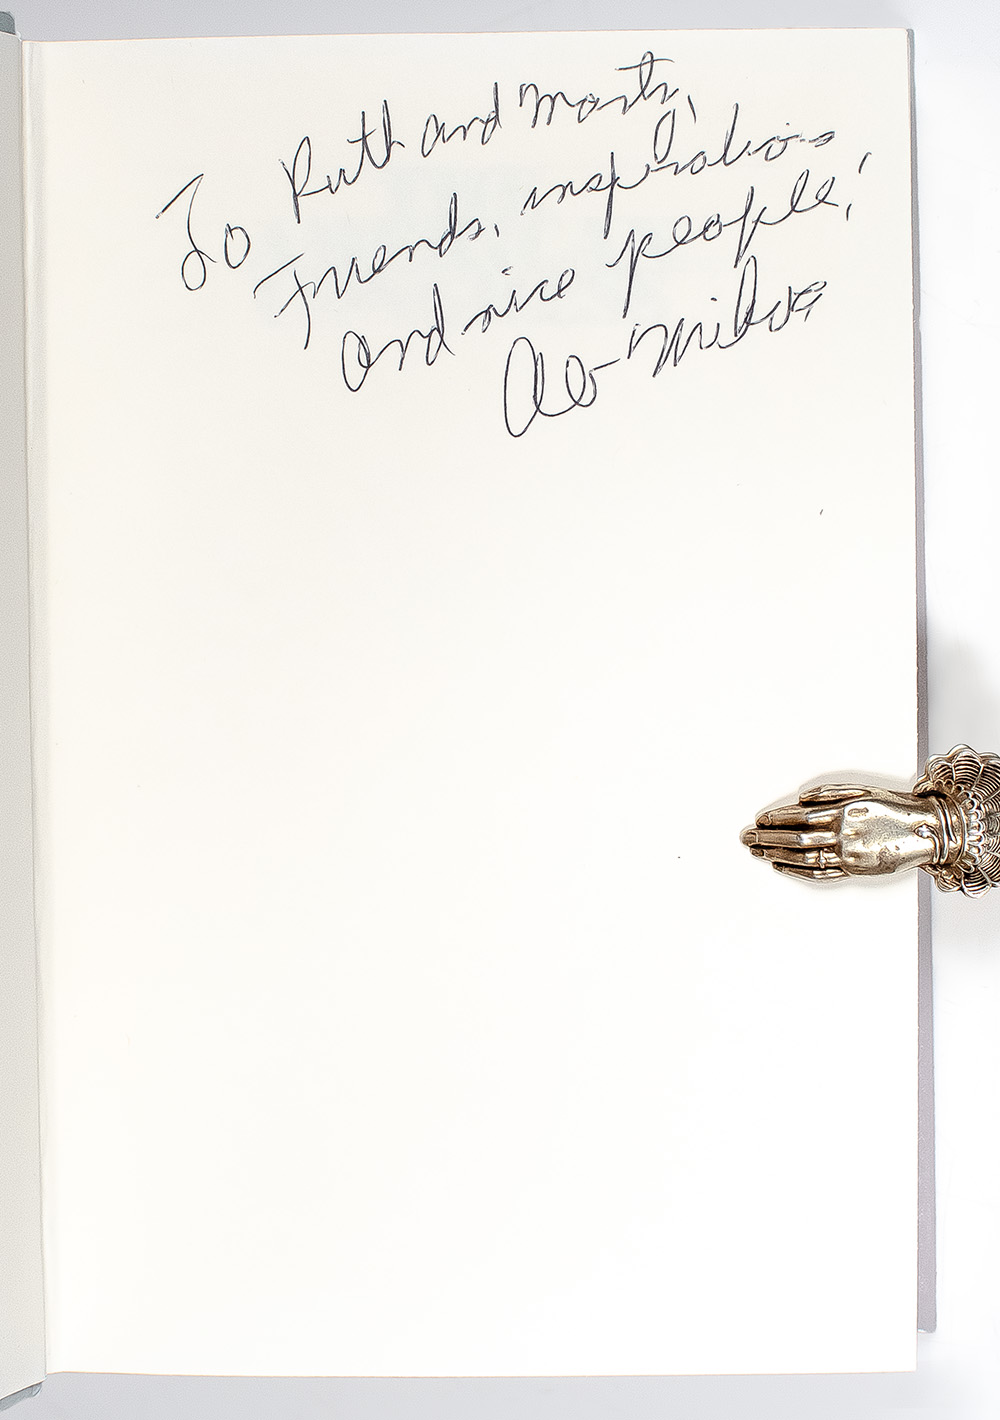 To Ruth and Marty,
Friends, inspirations
and nice people!
Ab Mikva